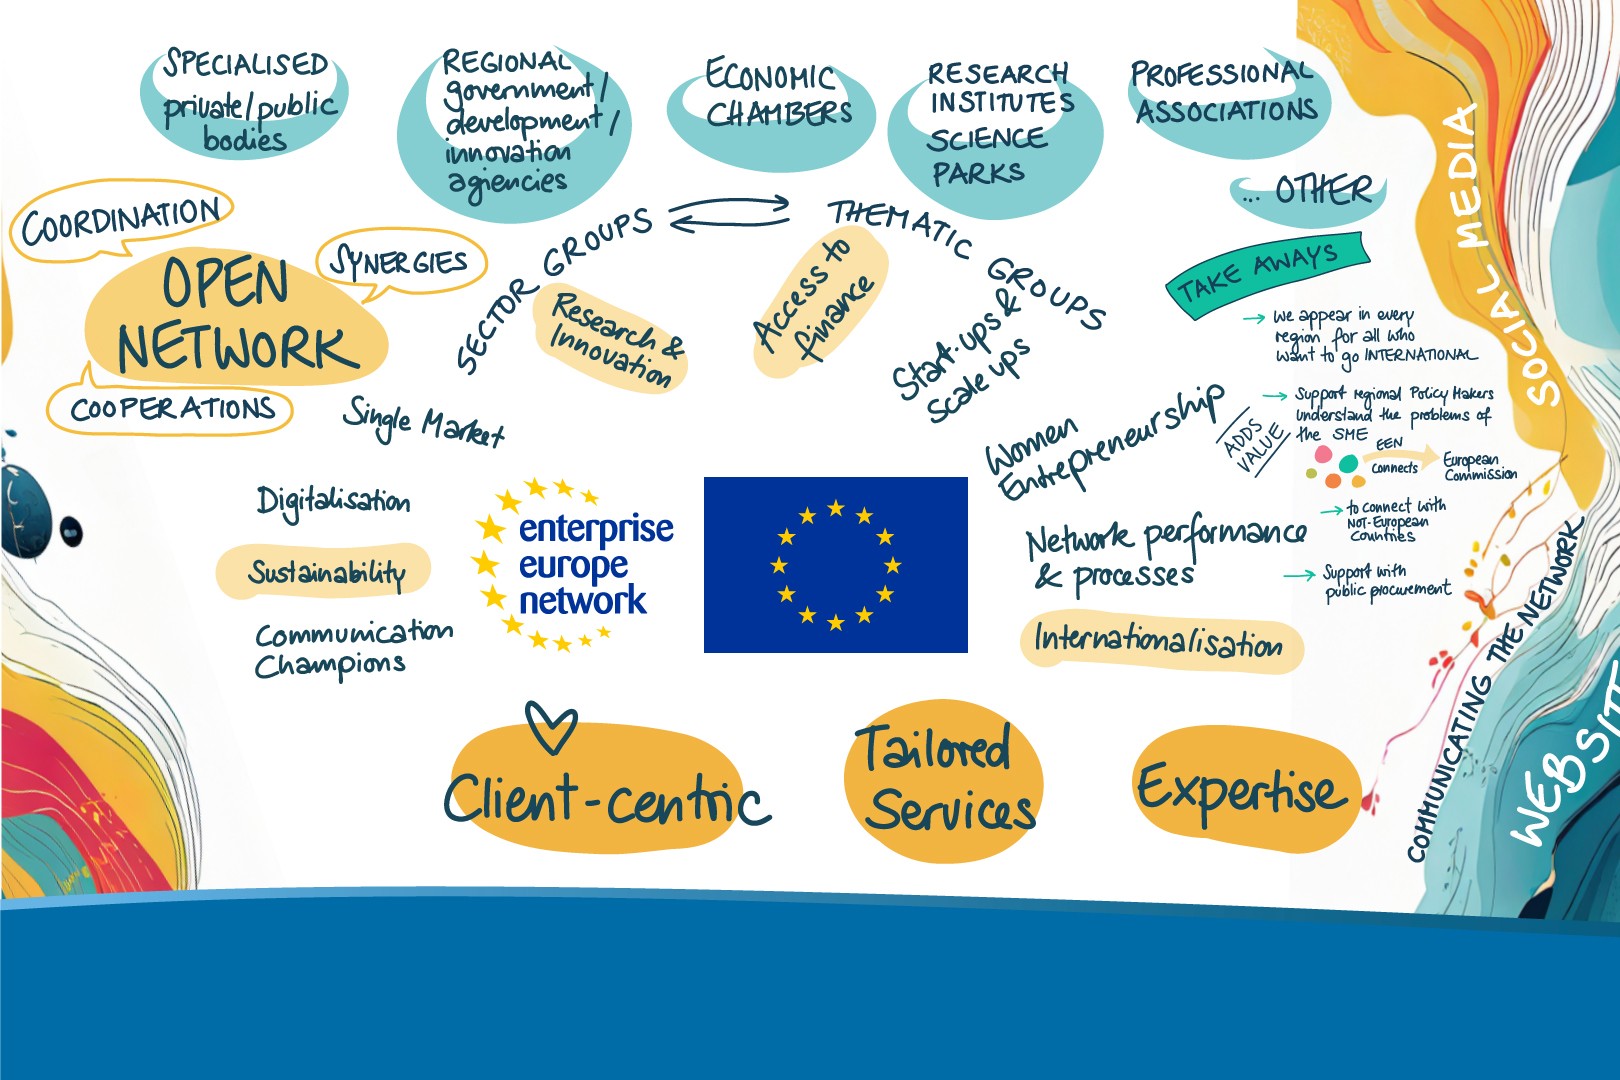 SPECIALISED
private/public
bodies
REGIONAL
government/
development/
innovation
agiencies
ECONOMIC
CHAMBERS
RESEARCH
INSTITUTES
SCIENCE
PARKS
PROFESSIONAL
ASSOCIATIONS
... OTHER
COORDINATION
OPEN
NETWORK
SYNERGIES
COOPERATIONS
SECTOR GROUPS
THEMATIC GROUPS
Single Market
Research &
Innovation
Access to
finance
Start-ups &
Scale ups
Women
Entrepreneurship
Digitalisation
Sustainability
Communication
Champions
enterprise
europe
network
Network performance
& processes
Internationalisation
TAKE AWAYS
we appear in every
region for all who
want to go INTERNATIONAL
ADDS
VALUE
Support regional Policy Makers
understand the problems of
the SME
EEN
connects
European
Commission
to connect with
Not-European
Countries
Support with
public procurement
Client-centric
Tailored
Services
Expertise
SOCIAL MEDIA
COMMUNICATING THE NETWORK
WEBSITE